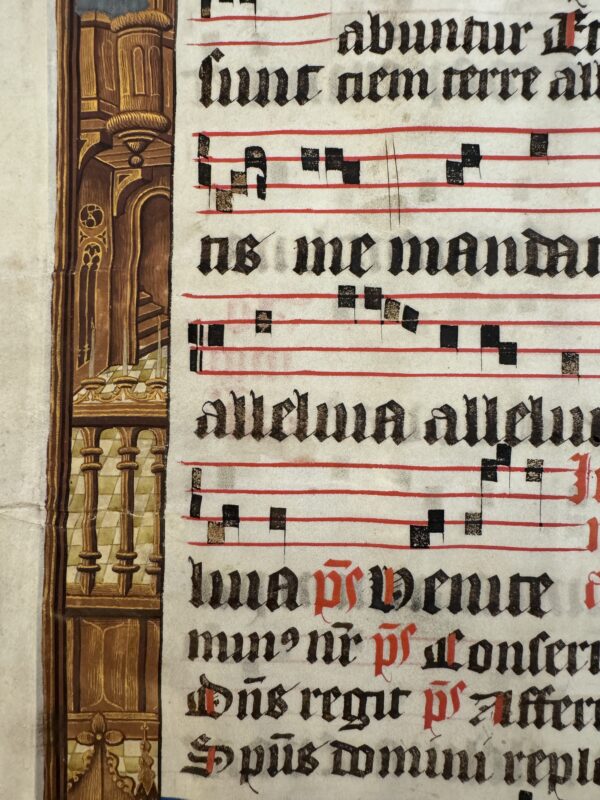 abuntur Et
sunt ciem terre all
tis me mandat
alleluia alleluu
luia p̄s Venite
min⁹ nr̄ p̄s Conser
Dn̄s regit p̄s Affer
Spūs domini reple